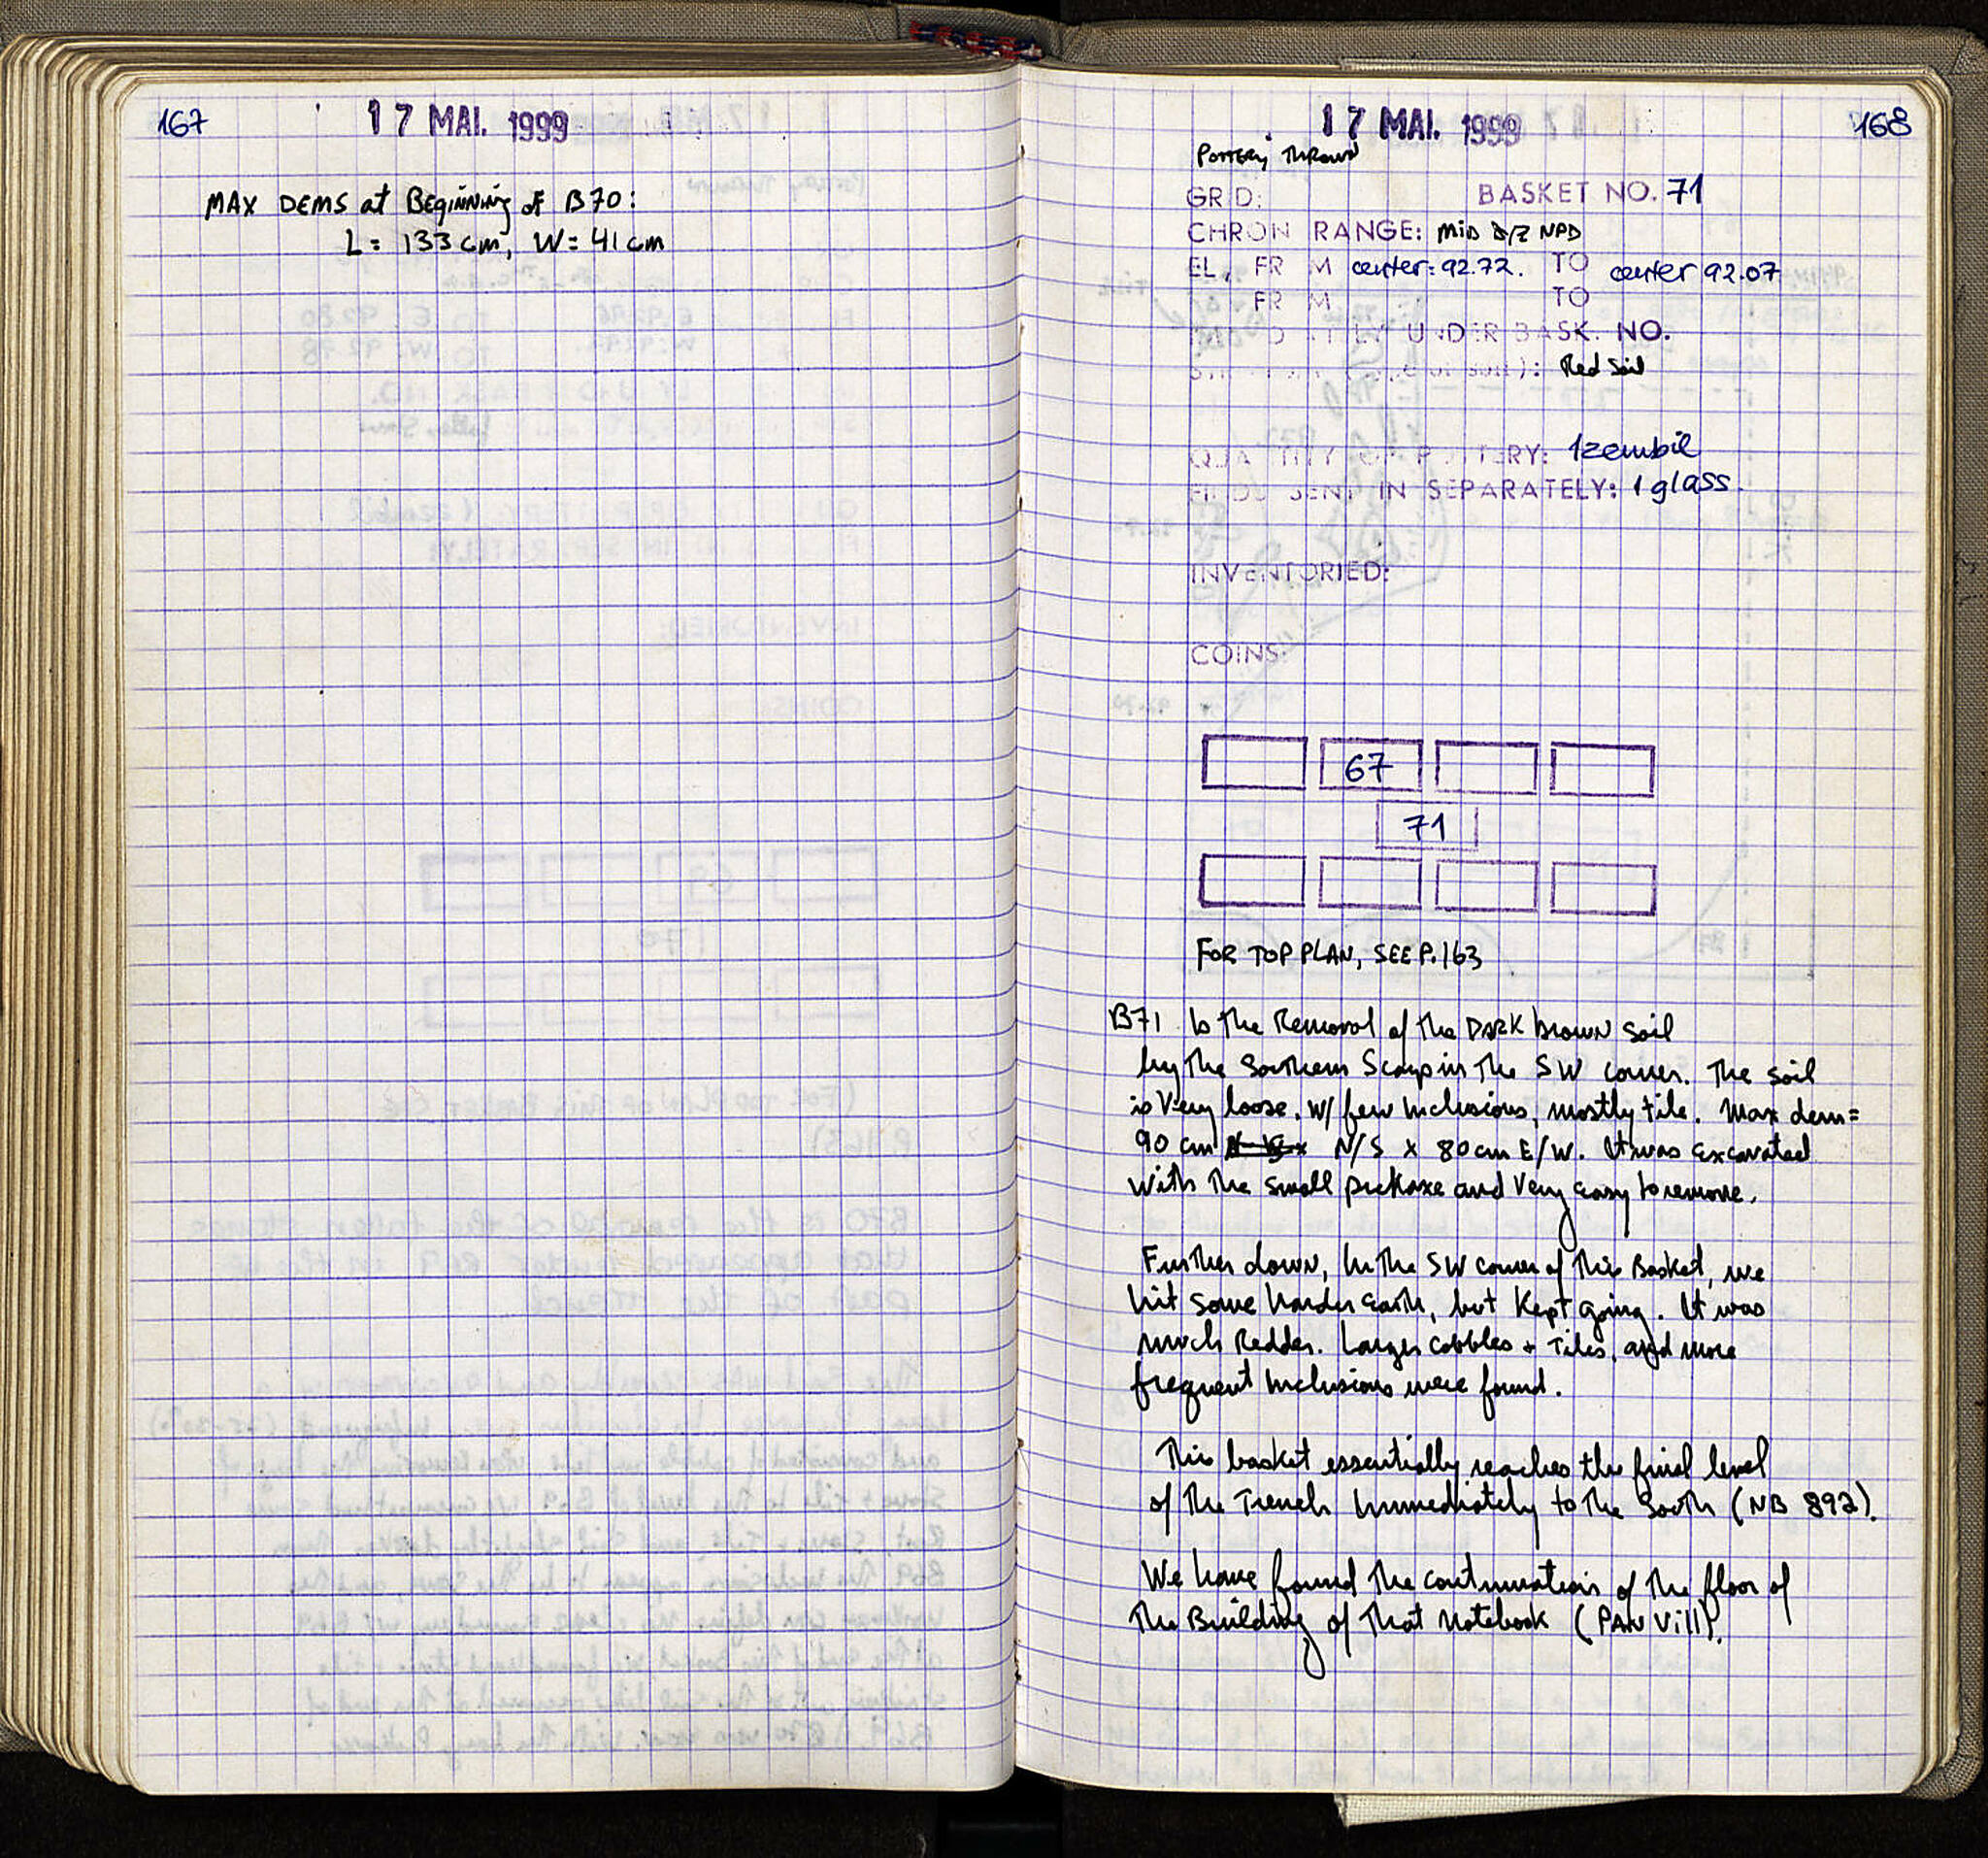 167
17 MAI. 1999
MAX DEMS at Beginning of B70:
L = 133 cm, W = 41 cm
17 MAI. 1999
168
Pottery Thrown
GRID: BASKET NO. 71
CHRON RANGE: MID NPD
EL, FR M center: 92.72. TO center 92.07
FR M TO
UNDER BASK. NO.
Red Soil
QUANTITY OF POTTERY: 1 zembil
FINDS SENT IN SEPARATELY: 1 glass.
INVENTORIED:
COINS:
67
71
FOR TOP PLAN, SEE P. 163
B71 Is the Removal of the DARK brown soil
by the Southern Scarp in the SW corner. The soil
is Very loose, w/ few Inclusions, mostly tile. Max dem =
90 cm N/S x 80 cm E/W. It was Excavated
with the small pickaxe and Very easy to remove.
Further down, In the SW corner of this Basket, we
hit some harder earth, but Kept going. It was
much Redder. Larger cobbles + Tiles, and more
frequent Inclusions were found.
This basket essentially reaches the final level
of the Trench Immediately to the South (NB 892).
We have found the continuation of the floor of
the Building of That Notebook (PAN VIII).